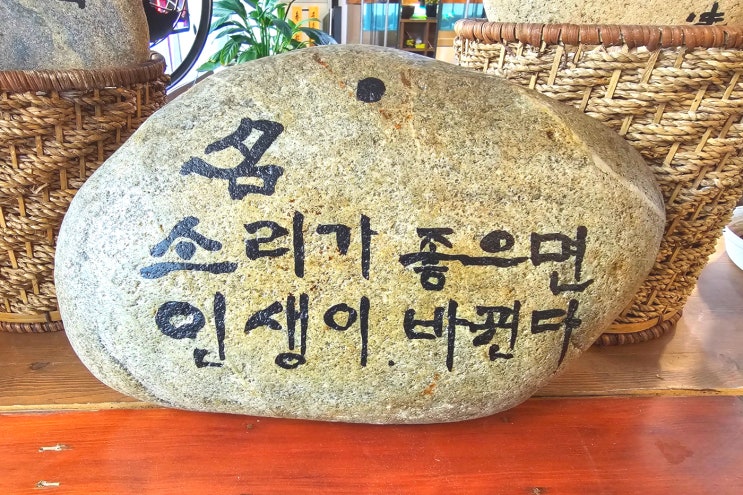 名
소리가 좋으면
인생이 바뀐다